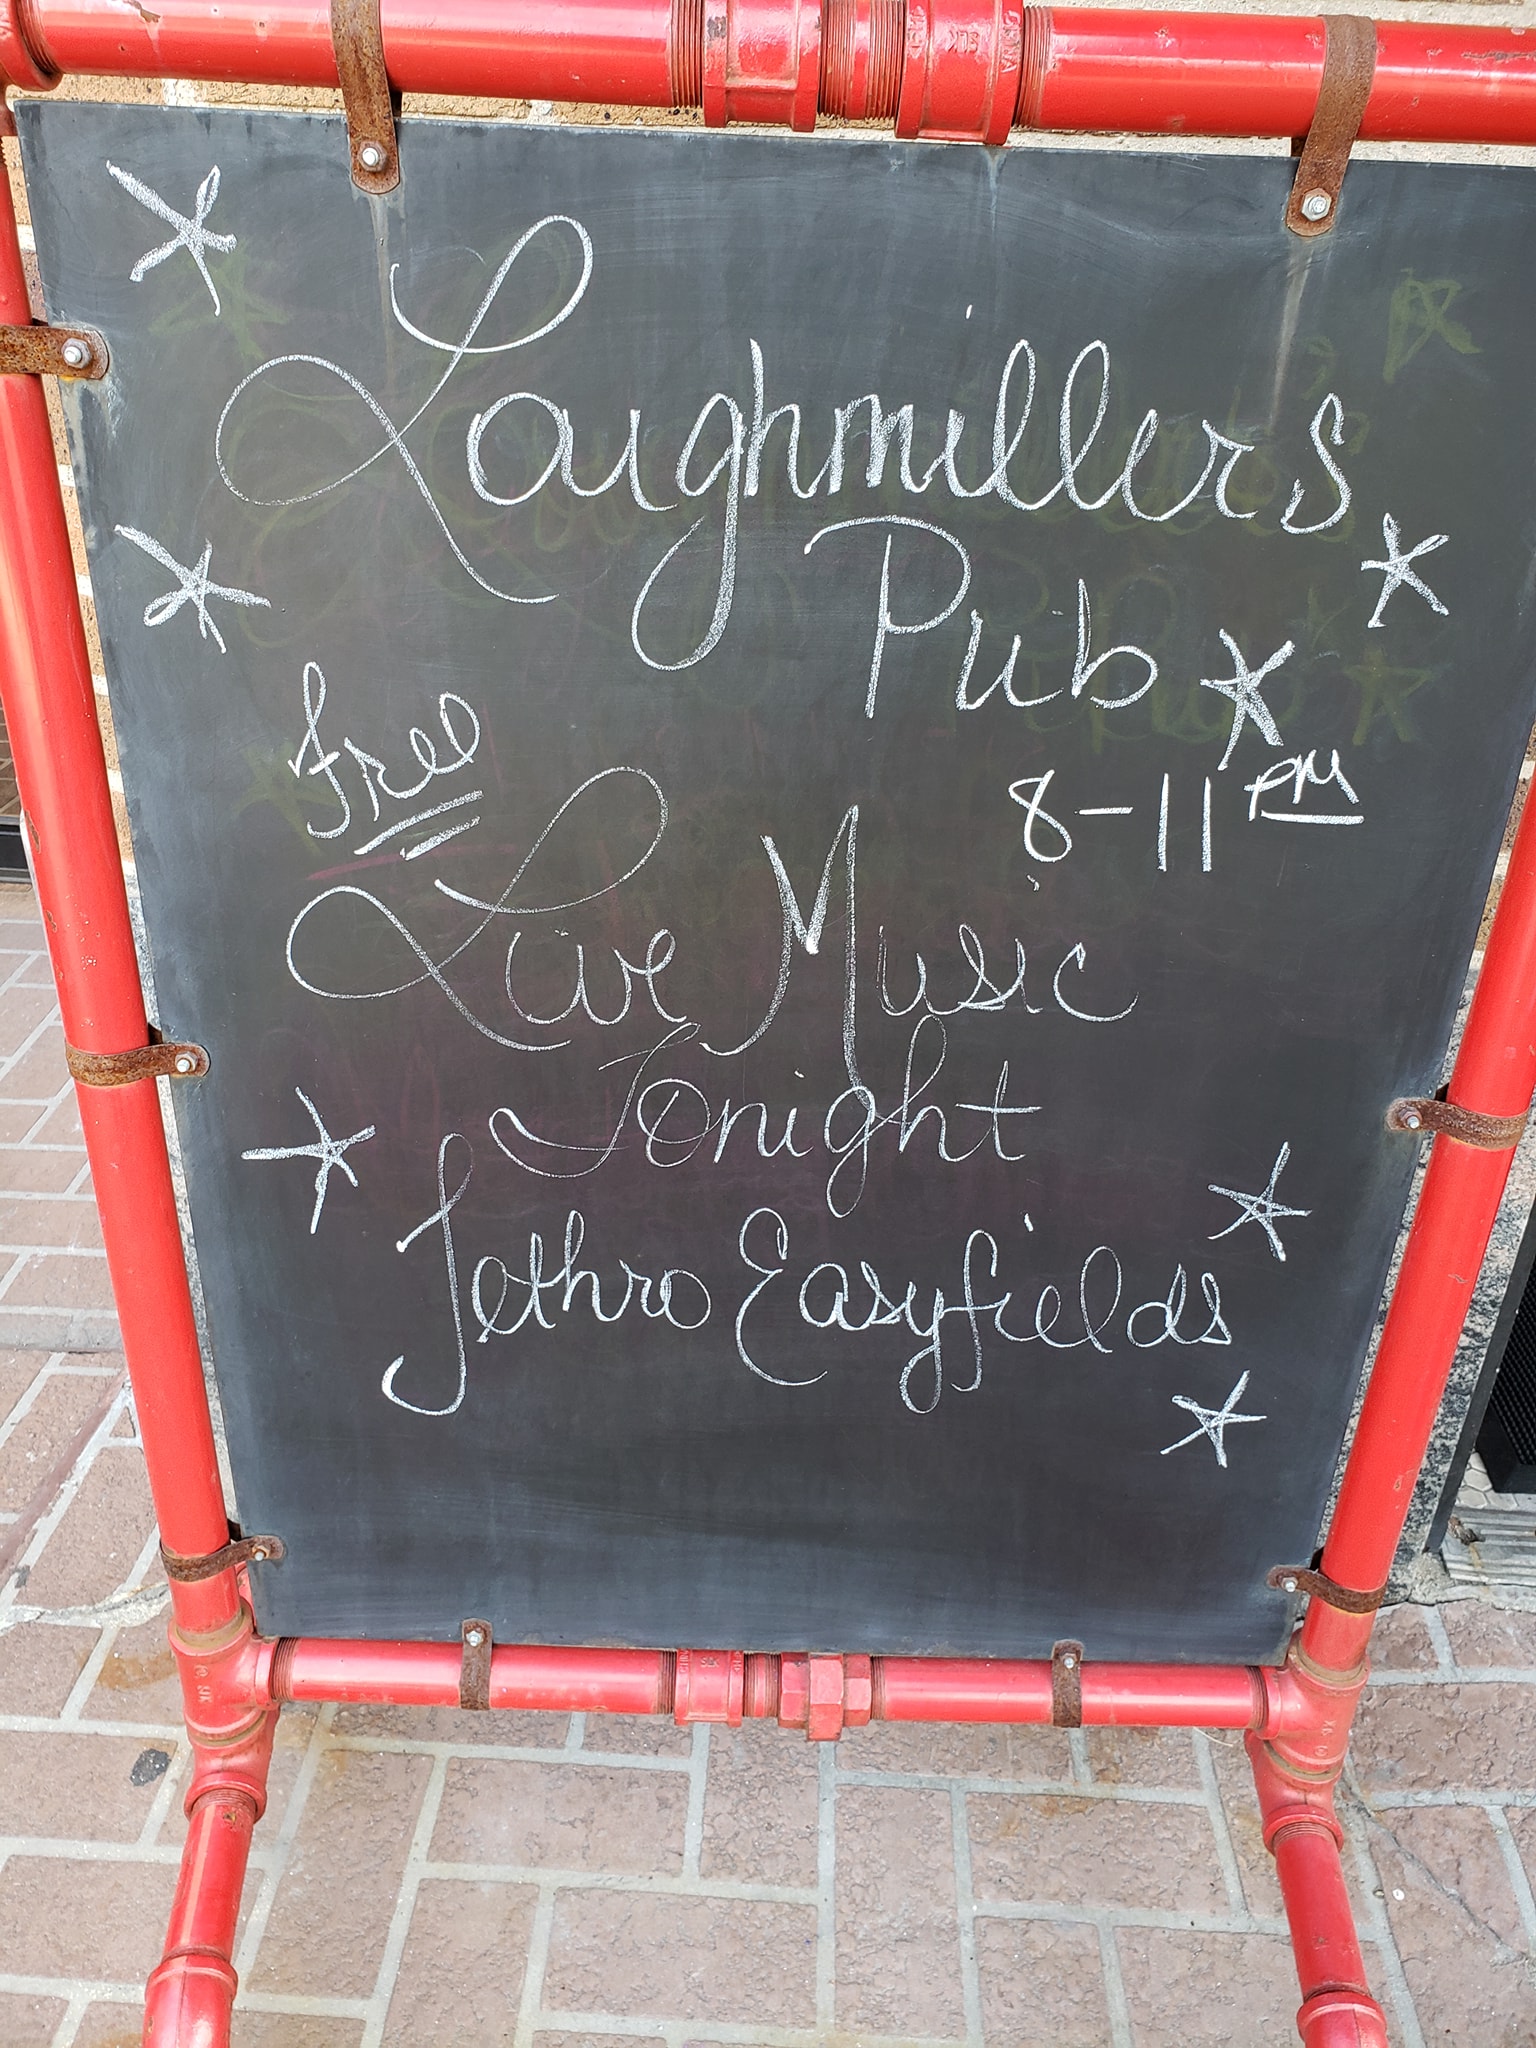 Loughmillers
Pub
Free
8-11 PM
Live Music
Tonight
Jethro Easyfields